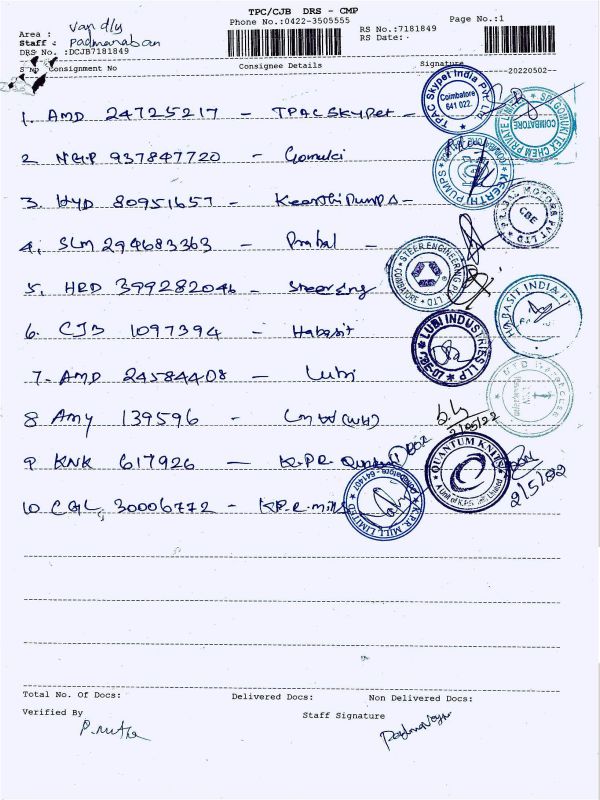 TPC/CJB DRS - CMP
Phone No.:0422-3505555
Page No.:1
Area : Van dly
Staff : Padmanaban
DRS No. :DCJB7181849
RS No.:7181849
RS Date:
S No Consignment No Consignee Details Signature 20220502
1. AMD 24725217 - TPAC Skypet -
TPAC Skypet India Pvt Coimbatore 641 022.
SRI GOMUKI TEX CHEM PRIVATE LIM COIMBATORE
2. NGP 937847720 - Gomuki
KEERTHI PUMPS
3. HYD 80951657 - Keerthi Pumps -
PRABAL MOTORS PVT LTD CBE
4. SLM 294683363 - Prabal -
STEER ENGINEERING LTD COIMBATORE
5. HRD 399282046 - Steer Eng
HABASIT INDIA P
6. CJB 1097394 - Habasit
LUBI INDUSTRIES LLP
7. AMD 24584408 - Lubi
8. AMY 139596 -
2/05/22
9. KNK 617926 - K.P.R. Quantum
QUANTUM KNITS A Unit of K.P.R. Limited
2/5/22
10. CGL 30006772 - K.P.R. mills
K.P.R. MILL LIMITED
Total No. Of Docs: Delivered Docs: Non Delivered Docs:
Verified By Staff Signature